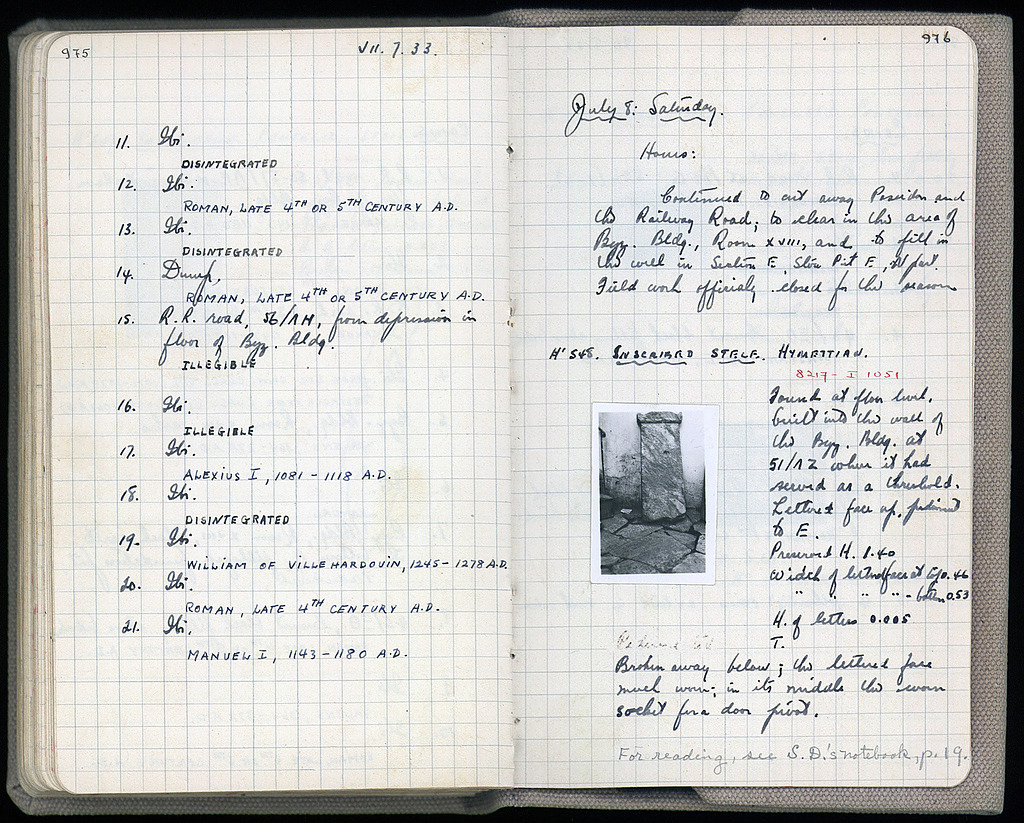 975
VII. 7. 33.
11. Ibi.
DISINTEGRATED
12. Ibi.
ROMAN, LATE 4TH OR 5TH CENTURY A.D.
13. Ibi.
DISINTEGRATED
14. Dump,
ROMAN, LATE 4TH OR 5TH CENTURY A.D.
15. R.R. road, 56/ΛΗ, from depression in
floor of Byz. Bldg.
ILLEGIBLE
16. Ibi.
ILLEGIBLE
17. Ibi.
ALEXIUS I, 1081 - 1118 A.D.
18. Ibi.
DISINTEGRATED
19. Ibi.
WILLIAM OF VILLEHARDOUIN, 1245 - 1278 A.D.
20. Ibi.
ROMAN, LATE 4TH CENTURY A.D.
21. Ibi.
MANUEL I, 1143 - 1180 A.D.
976
July 8: Saturday.
Hours:
Continued to cut away Poseidon and
the Railway Road; to clear in the area of
Byz. Bldg., Room XVIII, and to fill in
the well in Section E, Pit F, part.
Field work officially closed for the season
H' 548. INSCRIBED STELE. HYMETTIAN.
8217 - I 1051
Found at floor level,
built into the wall of
the Byz. Bldg. at
51/ΛΖ where it had
served as a threshold.
Lettered face up, pediment
to E.
Preserved H. 1.40
Width of lettered face at top 0.46
" " " " - bottom 0.53
H. of letters 0.005
T.
Broken away below; the lettered face
much worn; in its middle the worn
socket for a door pivot.
For reading, see S.D.'s notebook, p. 19.